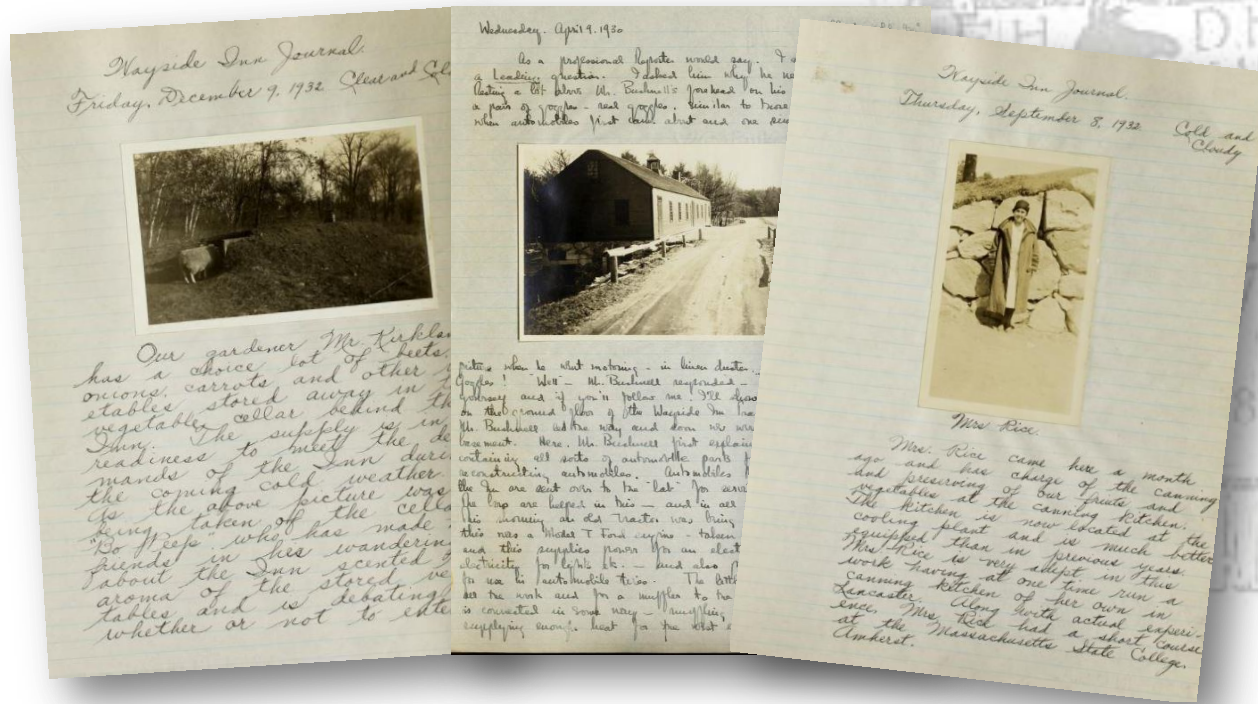 Wayside Inn Journal.
Friday, December 9, 1932 Clear and
Our gardener Mr.
has a choice lot of beets,
onions, carrots and other
etables stored away in
vegetable cellar behind
Inn. The supply is in
readiness to meet the de
mands of the Inn duri
the coming cold weather.
As the above picture was
being taken of the cella
"Bo Peep" who has made
friends in her wanderin
about the Inn scented
aroma of the stored ve
tables and is debating
whether or not to ente
Wednesday. April 9. 1930
As a professional Reporter would say. I a
a Leading question. I asked him why he
Resting a bit above Mr. Bushnell's forehead on his
a pair of goggles - real goggles. Similar to those
when automobiles first came about and one
picture when he went motoring - in linen duster.
Goggles! "Well" - Mr. Bushnell responded -
and if you'll follow me. I'll show
on the ground floor of the Wayside Inn
Mr. Bushnell led the way and down we
basement. Here, Mr. Bushnell first explain
containing all sorts of automobile parts
reconstructing automobiles. Automobiles
the Inn are sent over to the "lab" for
The boys are helped in this - and in all
this morning an old tractor was being
this was a Model T Ford engine - taken
and this supplies power for an elect
electricity for lights etc. - and also
for use in automobile tires. The
see the work and for a muffler to
is connected in some way - muffling
supplying enough heat for the
Wayside Inn Journal.
Thursday, September 8, 1932 Cold and
Cloudy
Mrs Rice.
Mrs. Rice came here a month
ago and has charge of the canning
and preserving of our fruits and
vegetables at the canning kitchen.
The kitchen is now located at the
cooling plant and is much better
equipped than in previous years.
Mrs. Rice is very adept in this
work having at one time run a
canning kitchen of her own in
Lancaster. Along with actual experi-
ence, Mrs. Rice had a short course
at the Massachusetts State College,
Amherst.